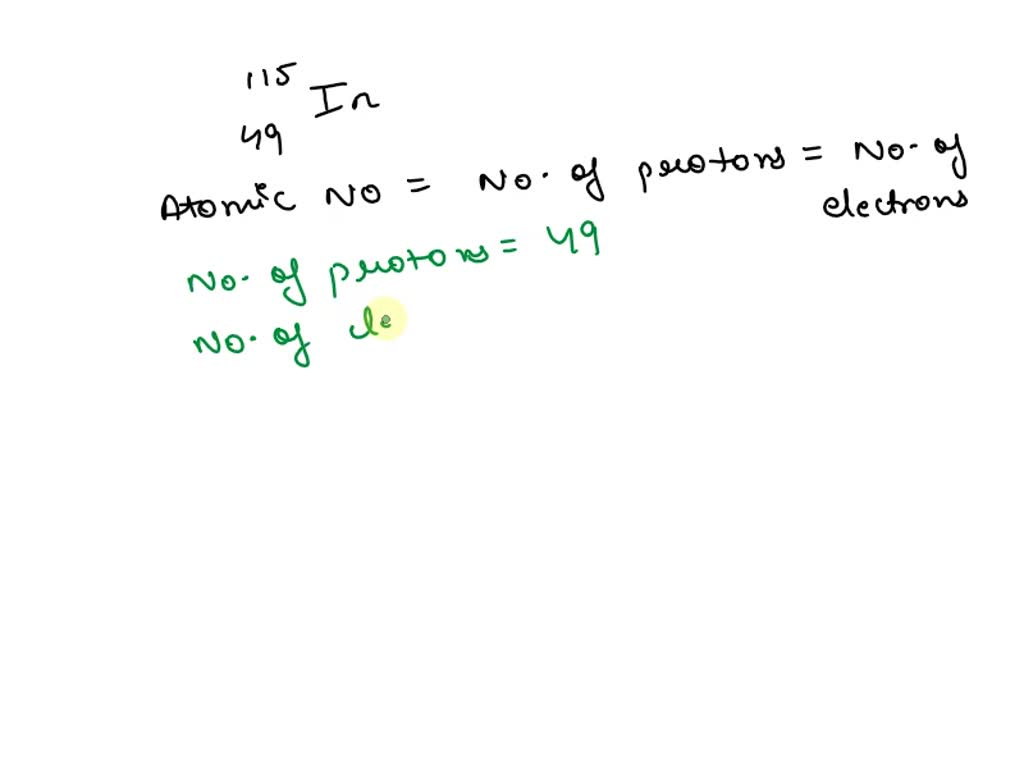 115
In
49
Atomic NO = No. of protons = No. of
electrons
No. of protons = 49
No. of ele